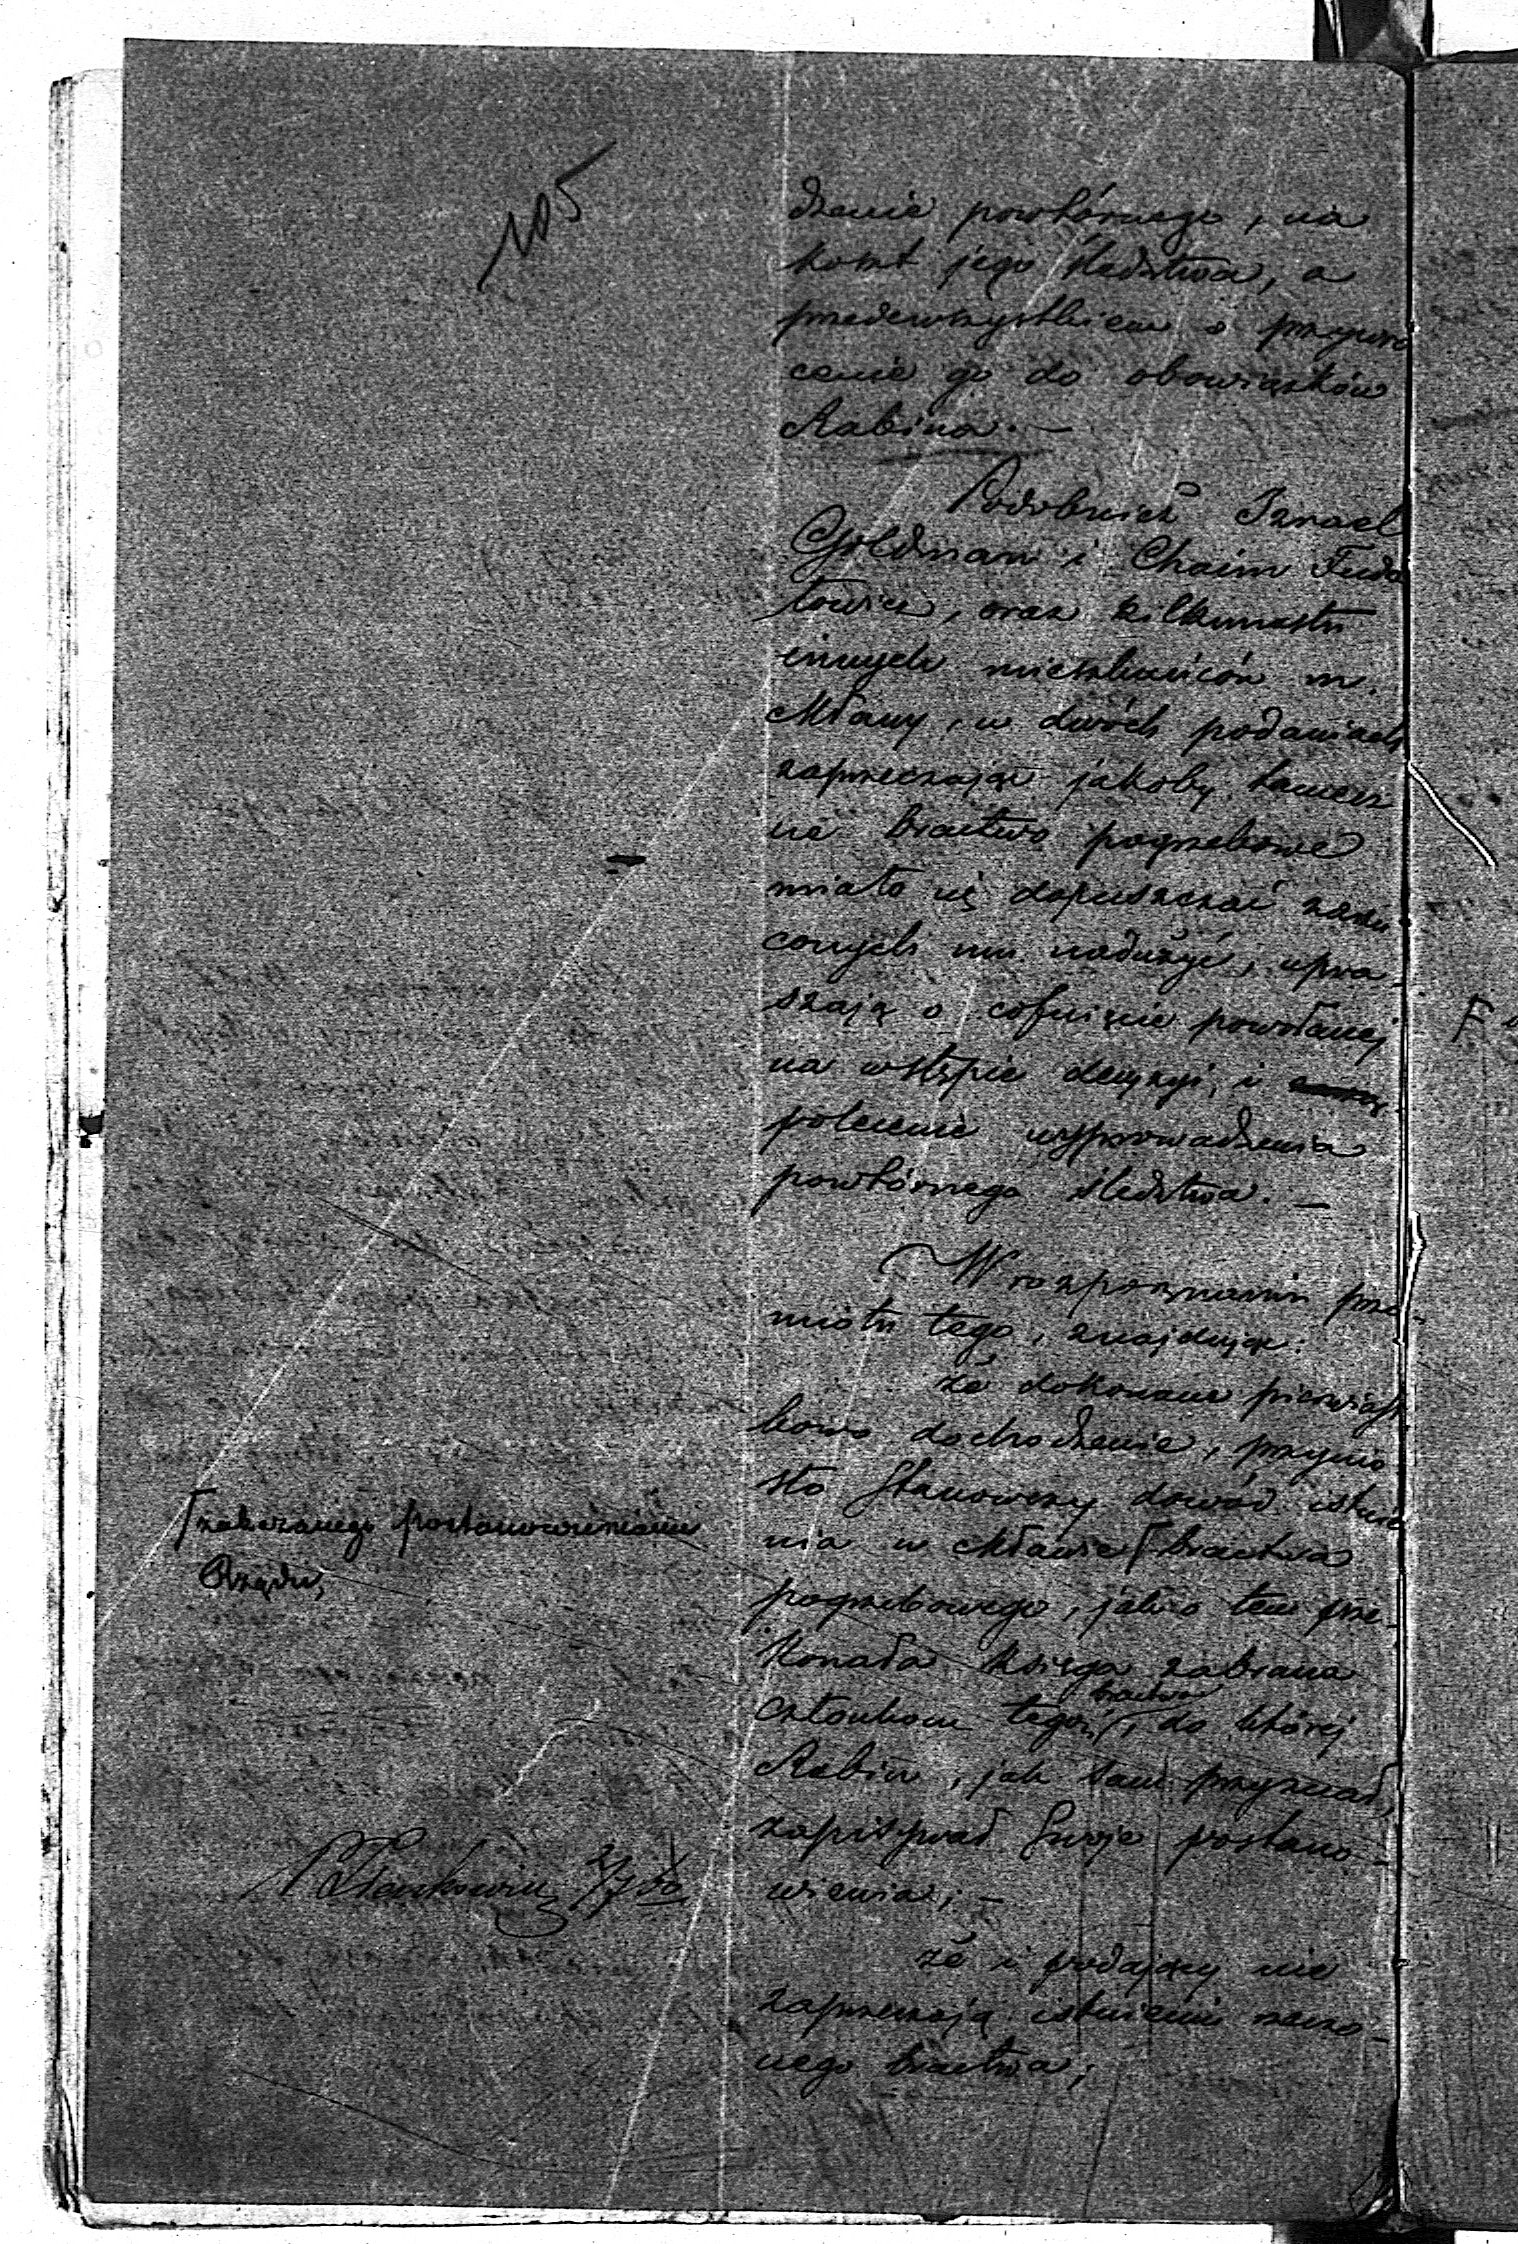 105
dzenie powtórnego, na
koszt jego śledztwa, a
przedewszystkiem o przywró
cenie go do obowiązków
Rabina. —
Podobnież Izrael
Goldman i Chaim Juda
towicz, oraz kilkunastu
innych mieszkańców m.
Mławy, w dwóch podaniach
zaprzeczając jakoby tamecz
ne bractwo pogrzebowe
miało się dopuszczać zarzu
conych mu nadużyć, upra-
szają o cofnięcie powołanej
na wstępie decyzyi, i
polecenie wyprowadzenia
powtórnego śledztwa. —
W rozpoznaniu prze-
miotu tego, znajdując:
że dokonane pierwiast
kowo dochodzenie, przynio
sło stanowczy dowód istnie
nia w Mławie Γ bractwa
pogrzebowego, jako tem prze-
konała księga zabrana
członkom tegoż bractwa, do której
Rabin, jak sam przyznał,
zapisywał swoje postano-
wienia; —
że i podający nie
zaprzeczają istnieniu rzeczo-
nego bractwa;
Γ zakazanego postanowieniami
Rządu,